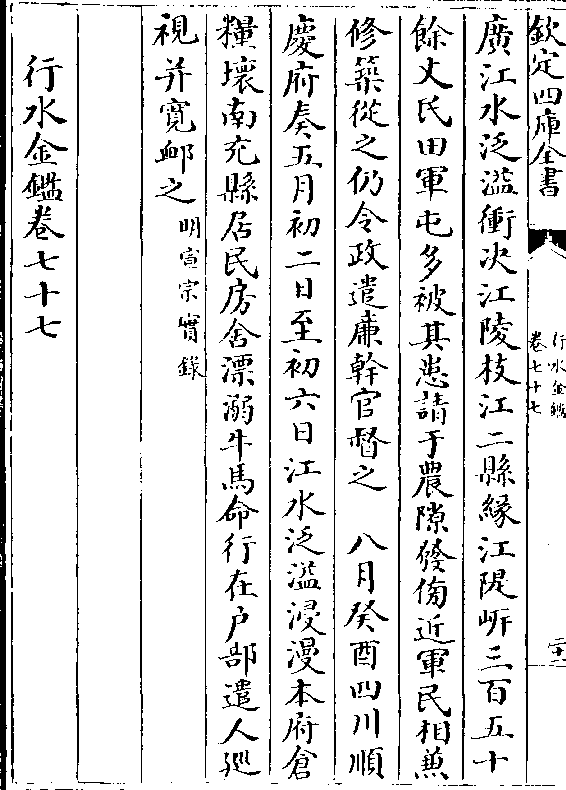 欽定四庫全書
行水金鑑
卷七十七
二十一
廣江水泛溢衝决江陵枝江二縣緣江隄㟁三百五十
餘丈民田軍屯多被其患請于農隙發傍近軍民相兼
修築從之仍令政遣廉幹官督之　八月癸酉四川順
慶府奏五月初二日至初六日江水泛溢浸漫本府倉
糧壞南充縣居民房舍漂溺牛馬命行在户部遣人廵
視并寛䘏之明宣宗實錄
行水金鑑卷七十七